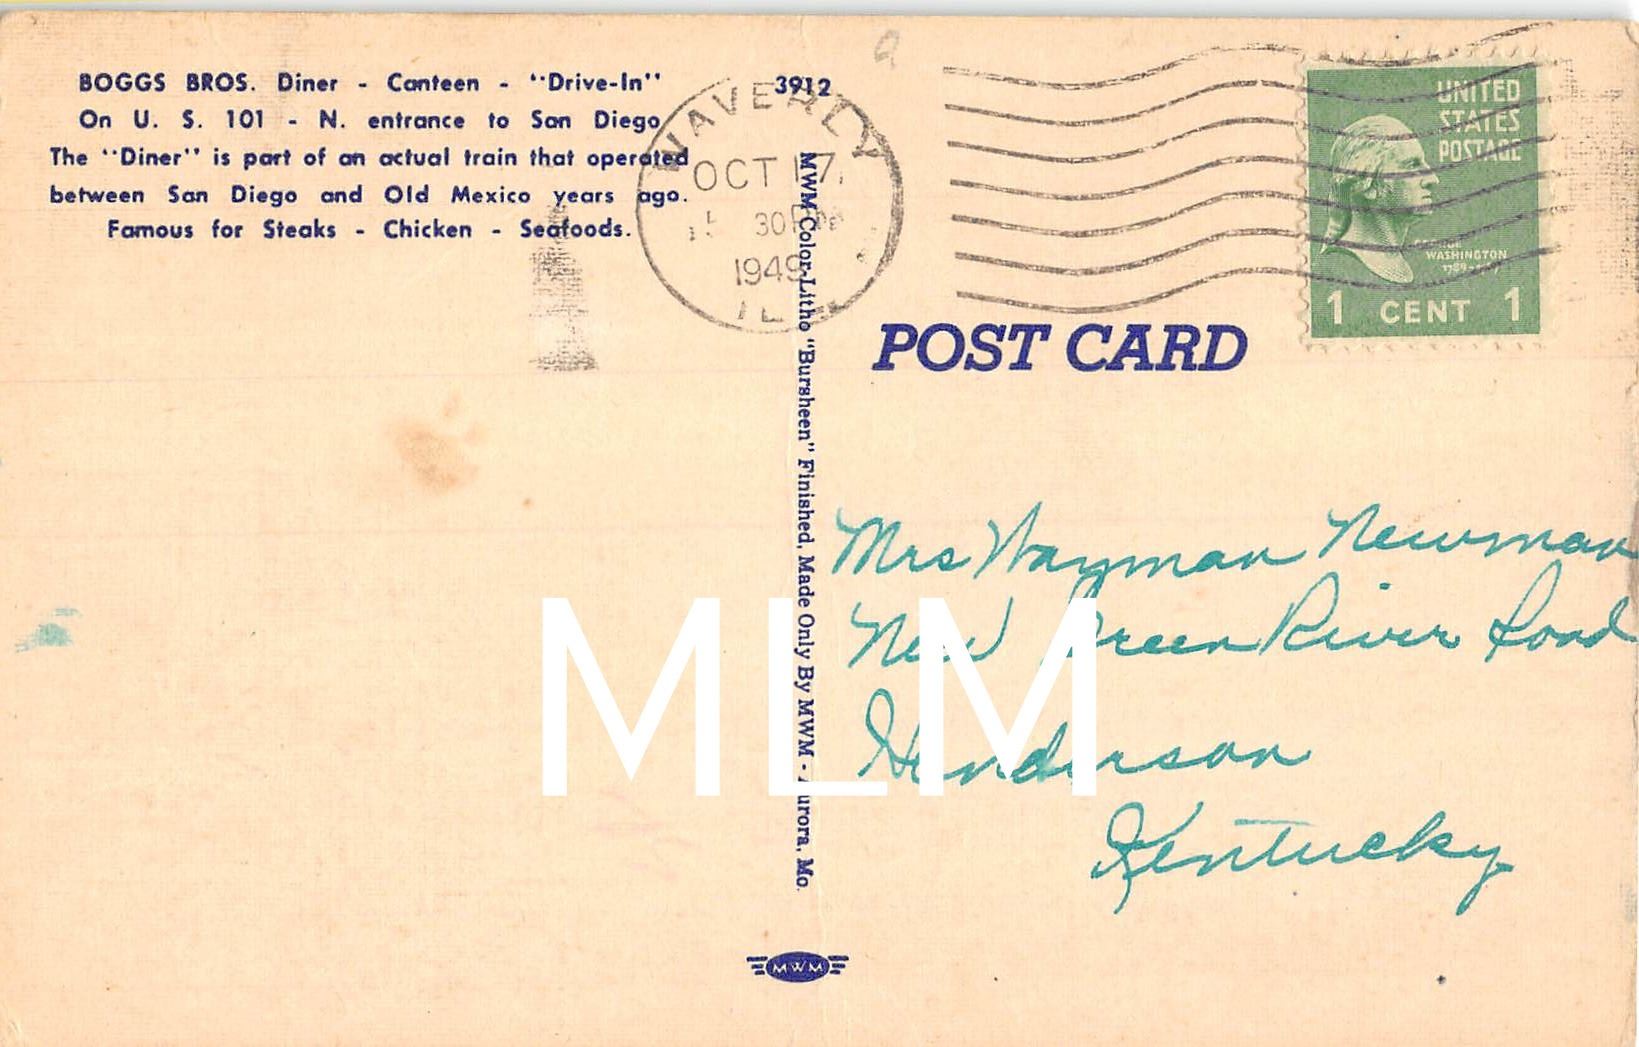 BOGGS BROS. Diner - Canteen - "Drive-In"
On U. S. 101 - N. entrance to San Diego
The "Diner" is part of an actual train that operated
between San Diego and Old Mexico years ago.
Famous for Steaks - Chicken - Seafoods.
3912
WAVERLY
OCT 17
5 30 PM
1949
ILL
MWM Color-Litho "Bursheen" Finished, Made Only By MWM - Aurora, Mo.
UNITED
STATES
POSTAGE
GEORGE
WASHINGTON
1 CENT 1
POST CARD
Mrs Wayman Newman
New Green River Road
Henderson
Kentucky
MLM
MWM